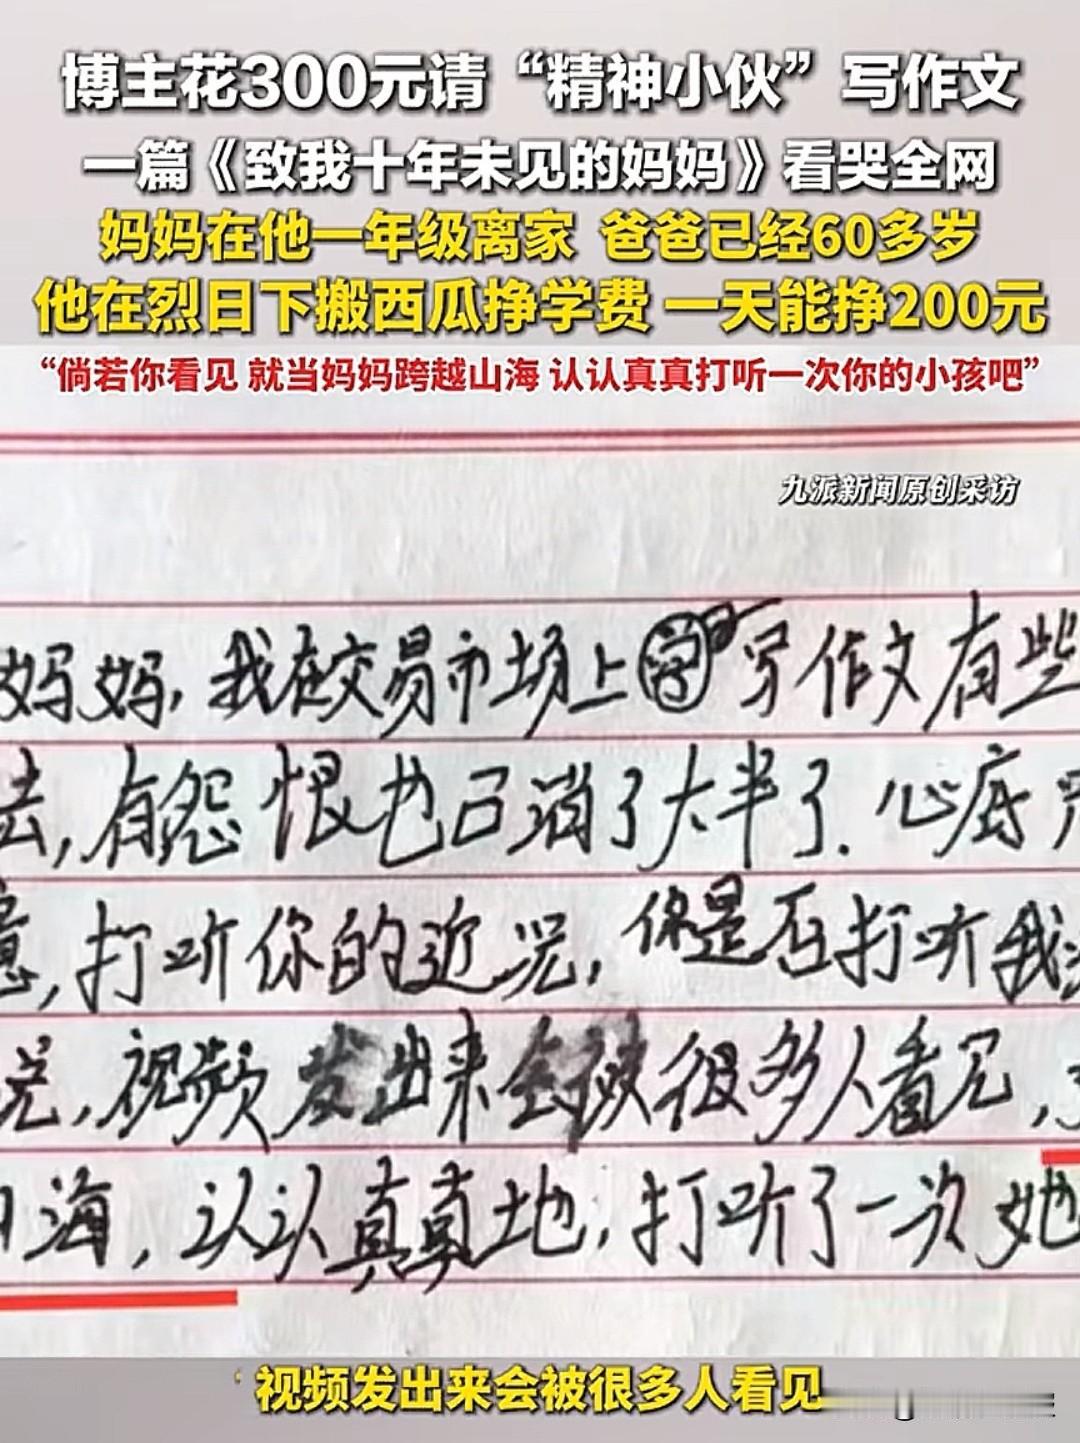 博主花300元请“精神小伙”写作文
一篇《致我十年未见的妈妈》看哭全网
妈妈在他一年级离家 爸爸已经60多岁
他在烈日下搬西瓜挣学费 一天能挣200元
“倘若你看见 就当妈妈跨越山海 认认真真打听一次你的小孩吧”
九派新闻原创采访
妈妈，我在交易市场上写作文有些
去，有怨恨也已消了大半了．心底
意，打听你的近况，你是否打听我
况，视频发出来会被很多人看见，
海，认认真真地，打听了一次她
视频发出来会被很多人看见